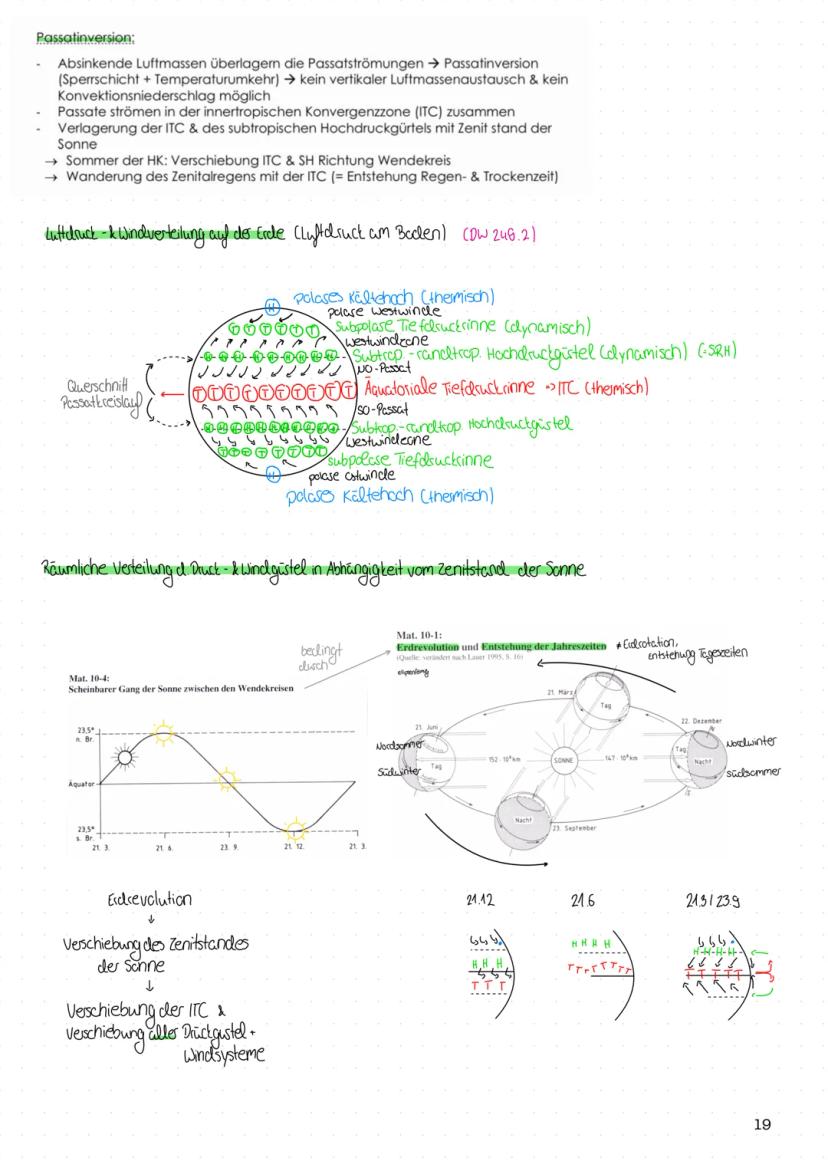 Passatinversion:
- Absinkende Luftmassen überlagern die Passatströmungen → Passatinversion
(Sperrschicht + Temperaturumkehr) → kein vertikaler Luftmassenaustausch & kein
Konvektionsniederschlag möglich
- Passate strömen in der innertropischen Konvergenzzone (ITC) zusammen
- Verlagerung der ITC & des subtropischen Hochdruckgürtels mit Zenit stand der
Sonne
→ Sommer der HK: Verschiebung ITC & SH Richtung Wendekreis
→ Wanderung des Zenitalregens mit der ITC (= Entstehung Regen- & Trockenzeit)
Luftdruck- & Windverteilung auf der Erde (Luftdruck am Boden) (DW 246.2)
polares Kältehoch (thermisch)
H
polare Westwinde
T T T T T T subpolare Tiefdruckrinne (dynamisch)
Westwindzone
H H H H H H H H Subtrop.-randtrop. Hochdruckgürtel (dynamisch) (=SRH)
NO-Passat
Querschnitt
Passatkreislauf
T T T T T T T T T T Äquatoriale Tiefdruckrinne => ITC (thermisch)
SO-Passat
Subtrop.-randtrop Hochdruckgürtel
Westwindzone
T T T T T T T subpolare Tiefdruckrinne
polare Ostwinde
H
polares Kältehoch (thermisch)
Räumliche Verteilung d. Druck- & Windgürtel in Abhängigkeit vom Zenitstand der Sonne
Mat. 10-4:
Scheinbarer Gang der Sonne zwischen den Wendekreisen
23,5°
n. Br.
Äquator
23,5°
s. Br.
21. 3. 21. 6. 23. 9. 21. 12. 21. 3.
bedingt
durch
Mat. 10-1:
Erdrevolution und Entstehung der Jahreszeiten ≠ Erdrotation,
Entstehung Tageszeiten
(Quelle: verändert nach Lauer 1995, S. 16)
21. März
Tag
21. Juni
22. Dezember
Nordsommer
Südwinter
Tag
152 · 10⁶ km
SONNE
147 · 10⁶ km
Tag
Nacht
Nordwinter
Südsommer
Nacht
23. September
Erdrevolution
↓
Verschiebung des Zenitstandes
der Sonne
↓
Verschiebung der ITC &
Verschiebung aller Druckgürtel +
Windsysteme
21.12 21.6 21.3 / 23.9
H H H
T T T
H H H H
T T T T T T T
H-H-H-H-
T T T T T
19